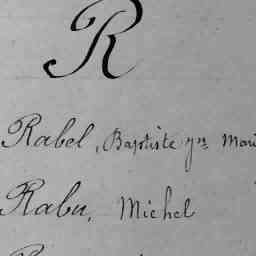 R
Rabel, Baptiste
Rabu, Michel